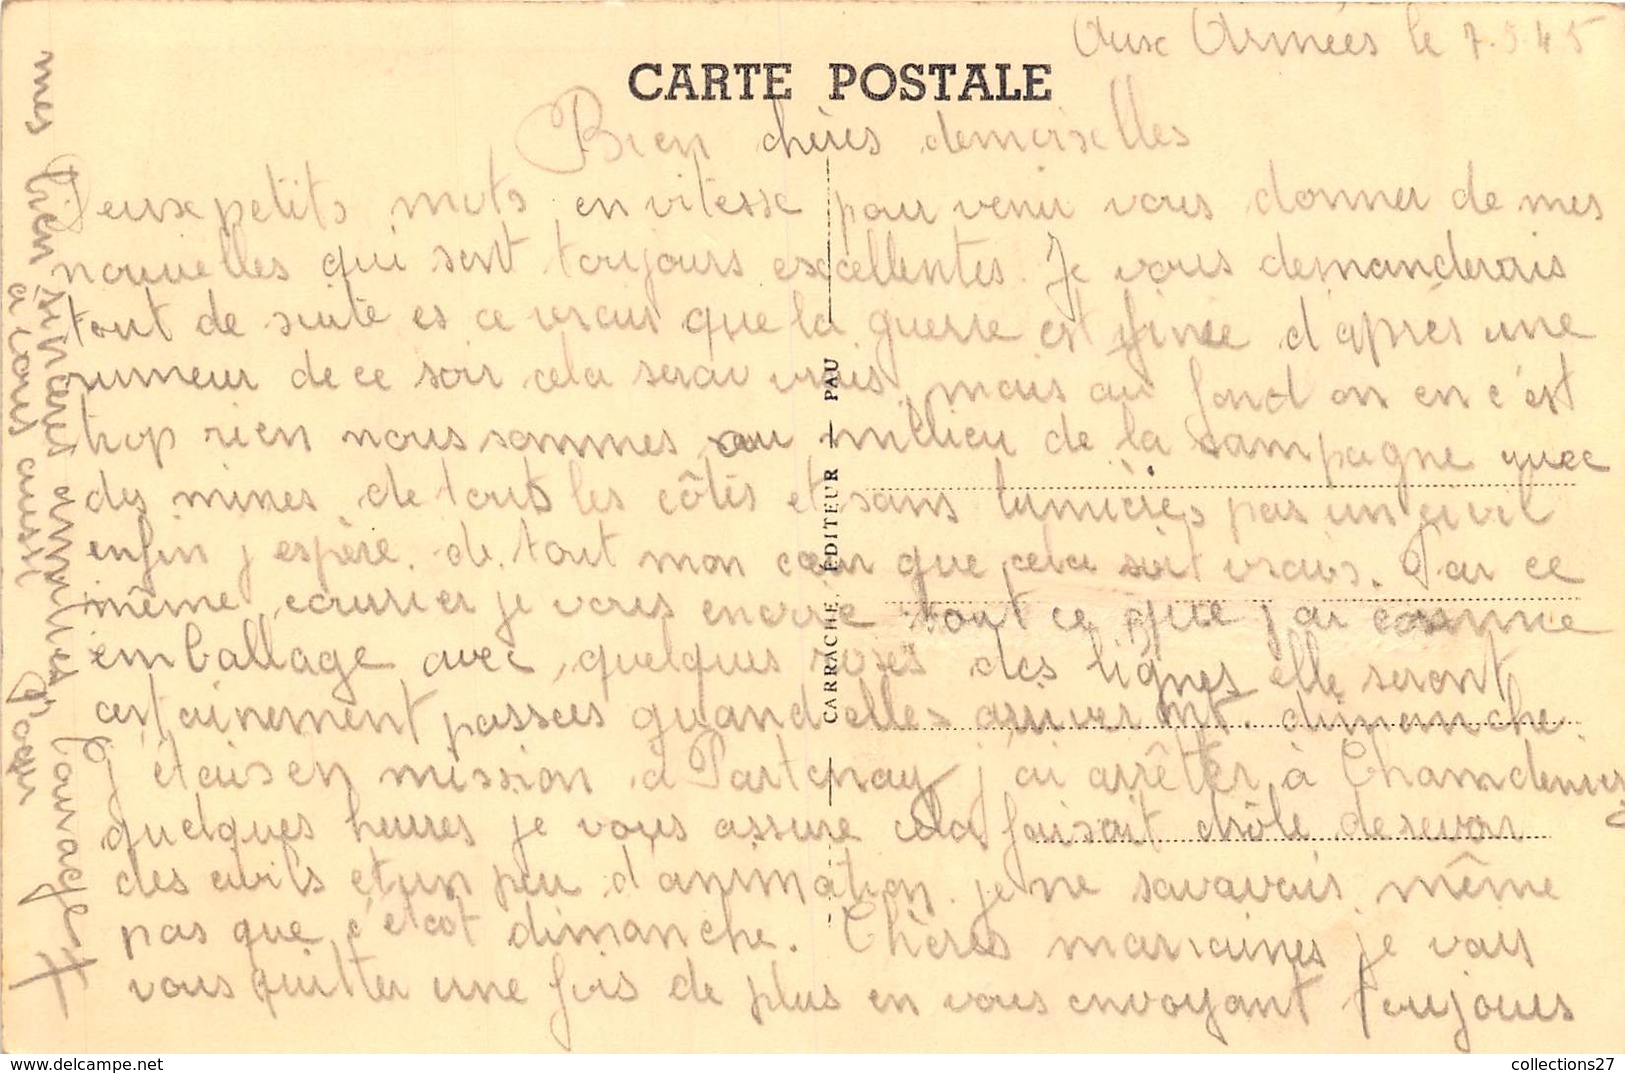 Aux Armées le 7.5.45
CARTE POSTALE
Bien chères demoiselles
Deux petits mots en vitesse pour venir vous donner de mes
nouvelles qui sont toujours excellentes. Je vous demanderais
tout de suite es ce vrais que la guerre est finie d'après une
rumeur de ce soir cela serai vrais, mais au fond on en c'est
trop rien nous sommes au milieu de la campagne avec
des mines de tous les côtés et sans lumières pas un civil
enfin j espère de tout mon cœur que cela soit vrais. Par ce
même courrier je vous envoie tout ce que j'ai comme
emballage avec quelques roses des lignes elle seront
certainement passées quand elles arriveront. dimanche
j'étais en mission a Partenay j'ai arrêter à Chamdeniers
quelques heures je vous assure cela faisait drôle de revoir
des civils et un peu d'animation je ne savavais même
pas que c'etait dimanche. Chères marraines je vais
vous quitter une fois de plus en vous envoyant toujours
mes bien sincères amitiés
a vous aussi
CARRACHE, ÉDITEUR — PAU
collections27